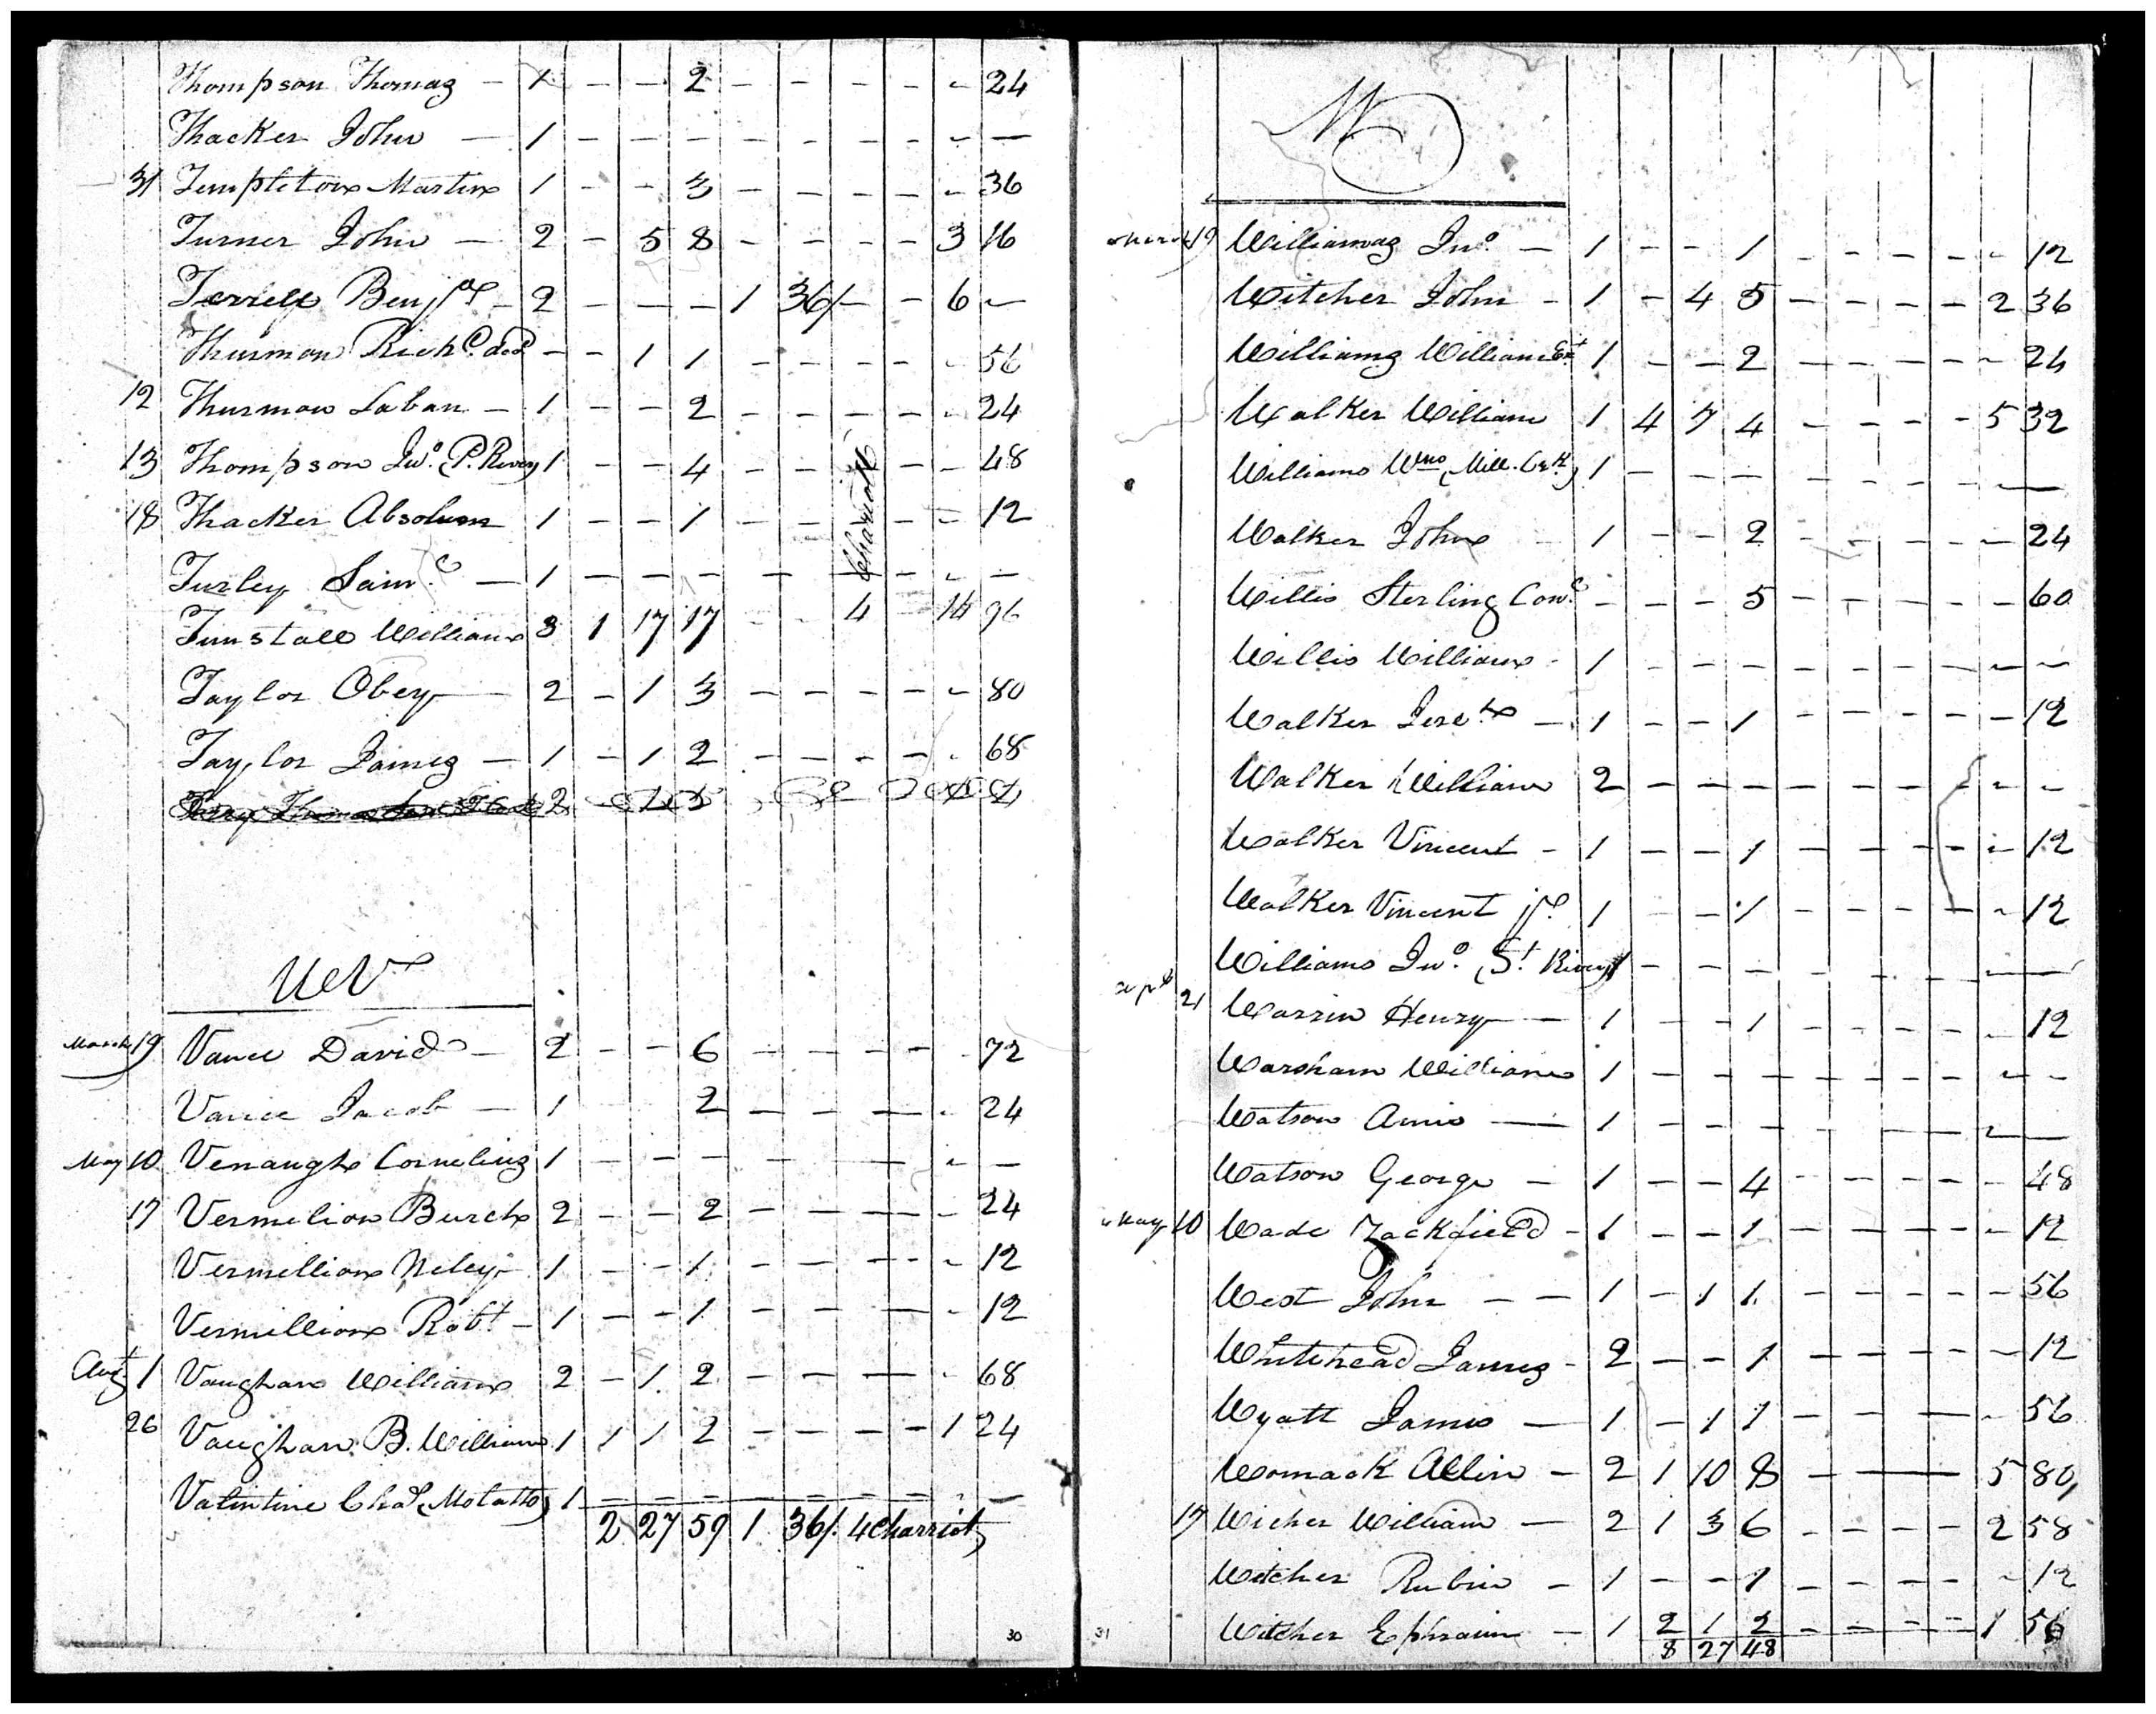 Thompson Thomas - 1 - - 2 - - - - - 24
Thacker John - 1 - - - - - - - - -
31 Templeton Martin 1 - - 3 - - - - - 36
Turner John - 2 - 5 8 - - - - 3 16
Terrell Benjn - 2 - - - 1 36/ - - 6 -
Thurmon Richd decd - - 1 1 - - - - - 56
12 Thurmon Laban - 1 - - 2 - - - - - 24
13 Thompson Jno. (P. River) 1 - - 4 - - - - - 48
18 Thacker Absolum 1 - - 1 - - - - - 12
Turley Saml - 1 - - - - - - - - -
Chariott
Tunstall William 3 1 17 17 - - 4 - 14 96
Taylor Obey - 2 - 1 3 - - - - - 80
Taylor James - 1 - 1 2 - - - - - 68
U & V
March 19 Vance David - 2 - - 6 - - - - - 72
Vance Jacob - 1 2 - - - - 24
May 10 Venaugh Cornelius 1 - - - - - - - - -
17 Vermilion Burch 2 - - 2 - - - - - 24
Vermillion Neley 1 - - 1 - - - - - 12
Vermillion Robt - 1 - - 1 - - - - - 12
Augt 1 Vaughan William 2 - 1 2 - - - - - 68
26 Vaughan B. William 1 1 1 2 - - - - 1 24
Valintine Chas (Molatto) 1 - - - - - - - - -
2 27 59 1 36/ 4 Charriot
30
W
March 19 Williams Jno. - 1 - - 1 - - - - - 12
Witcher John - 1 - 4 5 - - - - 2 36
Williams William 1 - - 2 - - - - - 24
Walker William 1 4 7 4 - - - - 5 32
Williams Wm (Mill. Crk) 1 - - - - - - - - -
Walker John - 1 - - 2 - - - - - 24
Willis Sterling Cons - - - 5 - - - - - 60
Willis William - 1 - - - - - - - - -
Walker Jereh - 1 - - 1 - - - - - 12
Walker William 2 - - - - - - - - -
Walker Vincent - 1 - - 1 - - - - - 12
Walker Vincent jr. 1 - - 1 - - - - - 12
Williams Jno. (St. River) 1 - - - - - - - -
Apl 21 Warrin Henry - 1 - - 1 - - - - - 12
Warsham William 1 - - - - - - - - -
Watson Amis - 1 - - - - - - - - -
Watson George - 1 - - 4 - - - - - 48
May 10 Wade Zackfield - 1 - - 1 - - - - - 12
West John - - 1 - 1 1 - - - - - 56
Whitehead James - 2 - - 1 - - - - - 12
Wyatt James - 1 - 1 1 - - - - 56
Womack Allin - 2 1 10 8 - - 5 80
17 Wicher William - 2 1 3 6 - - - - 2 58
Witcher Rubin - 1 - - 1 - - - - - 12
Witcher Ephraim - 1 2 1 2 - - - - 1 56
8 27 48
31